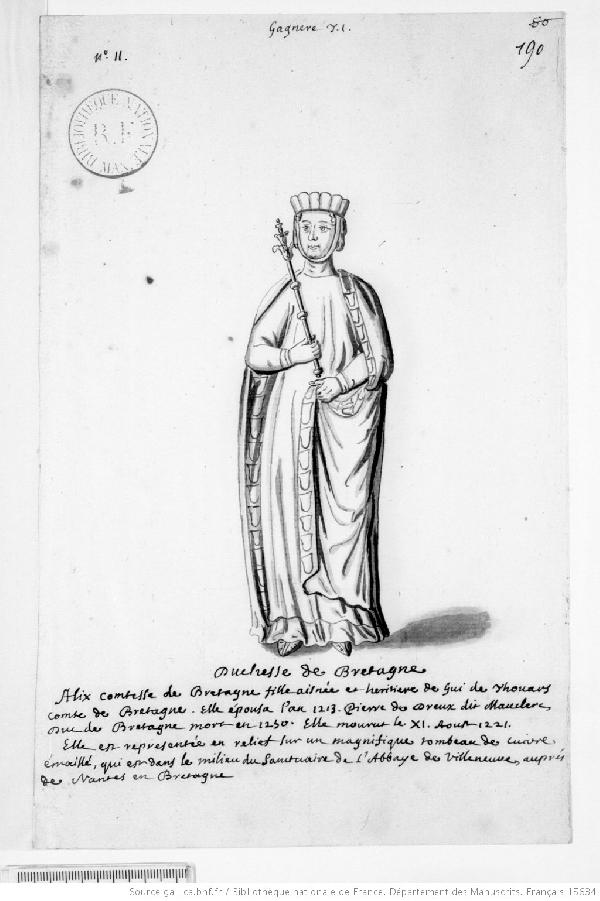 Gagnere T.I.
60
190
N.º II.
BIBLIOTHÈQUE NATIONALE MAN.
R.F
Duchesse de Bretagne
Alix comtesse de Bretagne fille aisnée et heritiere de Gui de Thouars
comte de Bretagne. Elle épousa l'an 1213. Pierre de Dreux dit Mauclerc,
Duc de Bretagne mort en 1250. Elle mourut le XI. Aoust 1221.
Elle est representée en relief sur un magnifique tombeau de cuivre
émaillé, qui est dans le milieu du Sanctuaire de l'Abbaye de Villeneuve, auprés
de Nantes en Bretagne
Source gallica.bnf.fr / Bibliothèque nationale de France. Département des Manuscrits. Français 15634